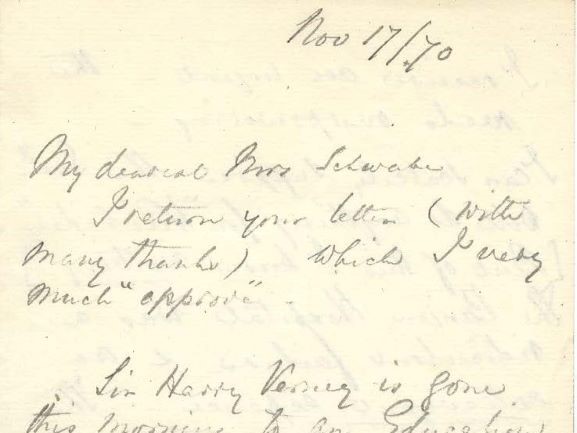 Nov 17/70
My dearest Mrs Schwabe
I return your letter (with
many thanks) which I very
much "approve".
Sir Harry Verney is gone
this morning to an Education